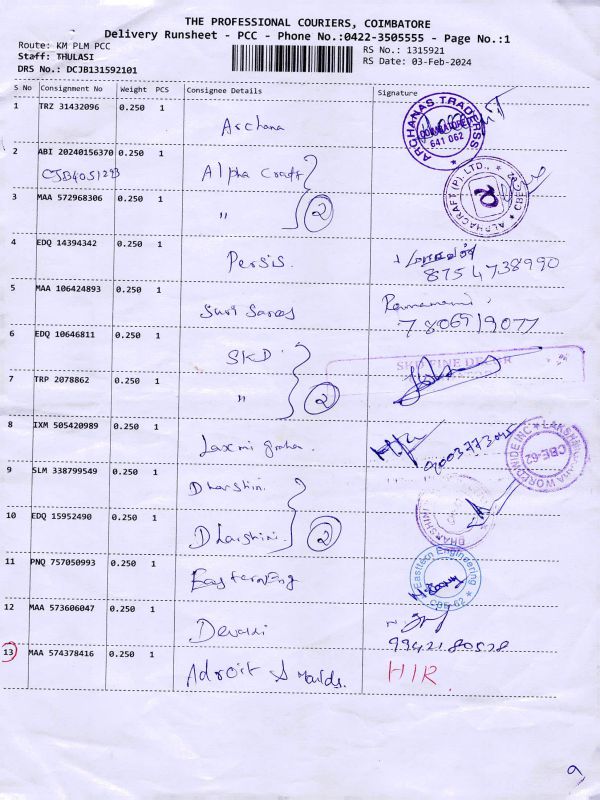 THE PROFESSIONAL COURIERS, COIMBATORE
Delivery Runsheet - PCC - Phone No.:0422-3505555 - Page No.:1
Route: KM PLM PCC RS No.: 1315921
Staff: THULASI RS Date: 03-Feb-2024
DRS No.: DCJB131592101
S No Consignment No Weight PCS Consignee Details Signature
1 TRZ 31432096 0.250 1 Archana
ARCHANAS TRADERSS COIMBATORE 641 062
2 ABI 20240156370 0.250 1 Alpha Craft
CJB4051293
ALPHACRAFT (P) LTD., CBE
3 MAA 572968306 0.250 1 " 2
4 EDQ 14394342 0.250 1 Persis.
8754738990
5 MAA 106424893 0.250 1 Suri Sarees
7806919077
6 EDQ 10646811 0.250 1 SKD
7 TRP 2078862 0.250 1 " 2
8 IXM 505420989 0.250 1 Laxmi graha
9003773045
WORLDWIDE INC CBE-62
9 SLM 338799549 0.250 1 Dharshini.
10 EDQ 15952490 0.250 1 Dharshini. 2
DHARSHINI
11 PNQ 757050993 0.250 1 Eastern Eng
Easttern Engineering CBE-62
12 MAA 573606047 0.250 1 Devaki
9942180528
13 MAA 574378416 0.250 1 Adroit & Moulds. HIR.
9